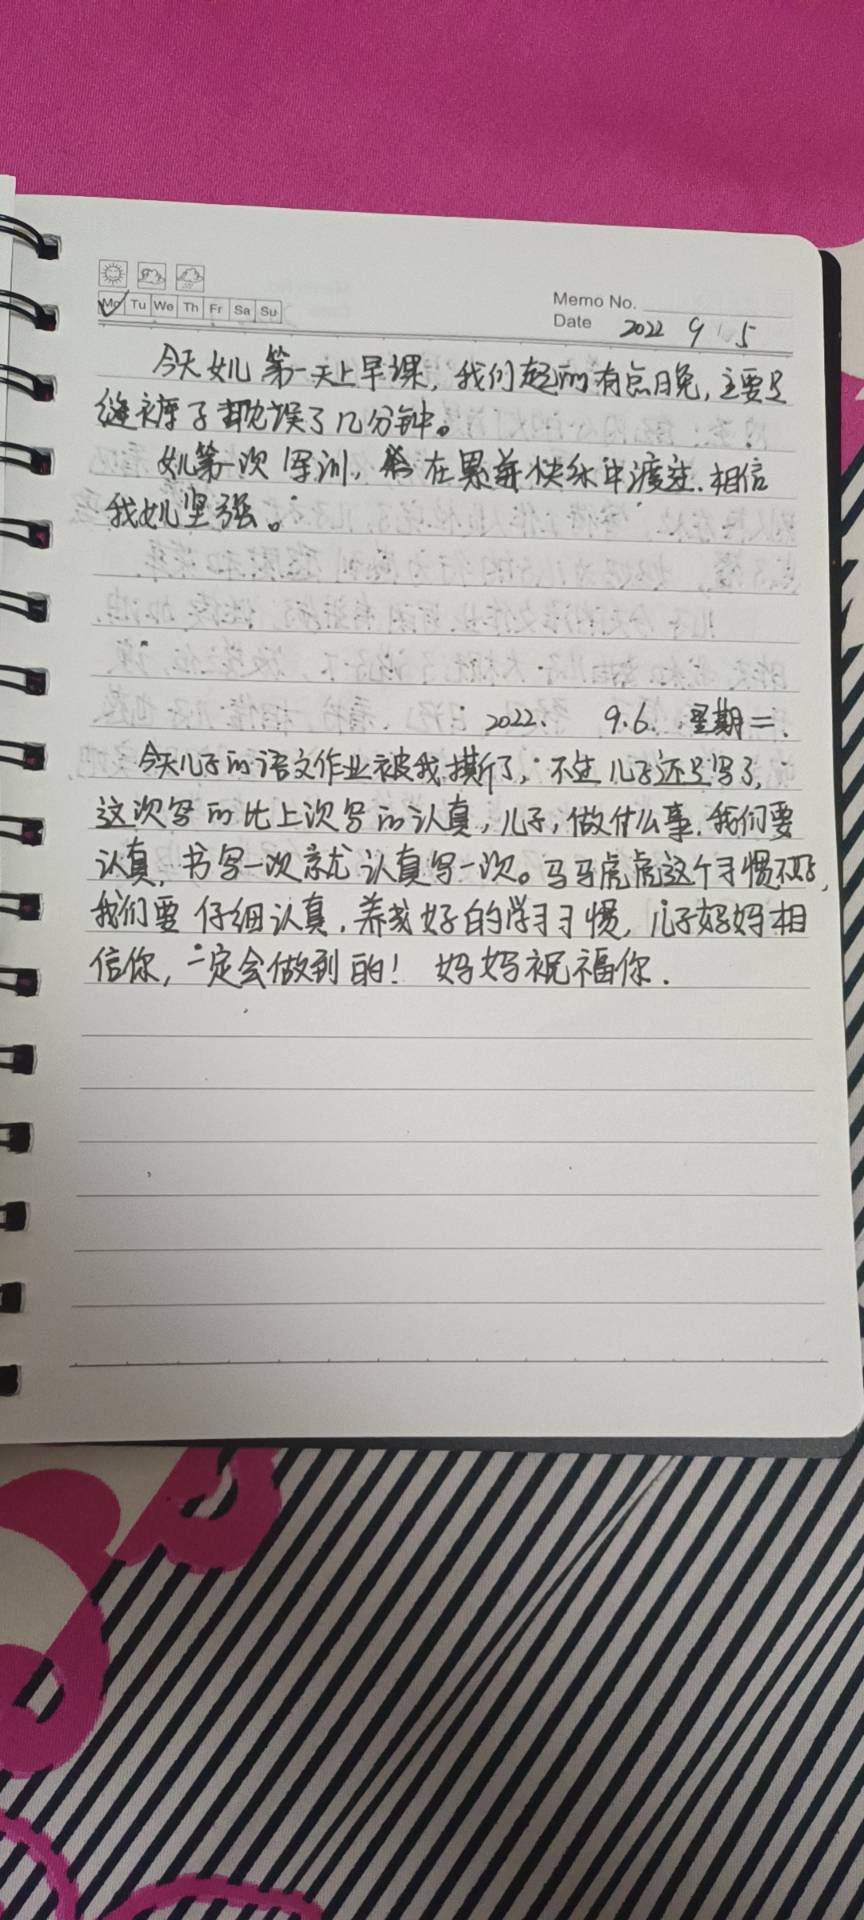 Mo Tu We Th Fr Sa Su
Memo No.
Date 2022 9 5
今天女儿第一天上早课，我们起的有点晚，主要是
缝裤子耽误了几分钟。
女儿第一次军训，在累并快乐中渡过.相信
我女儿坚强。
2022. 9.6. 星期二.
今天儿子的语文作业被我撕了，不过儿子还是写了，
这次写的比上次写的认真，儿子，做什么事.我们要
认真，书写一次就认真写一次。马马虎虎这个习惯不好，
我们要仔细认真，养成好的学习习惯，儿子妈妈相
信你，一定会做到的！妈妈祝福你.